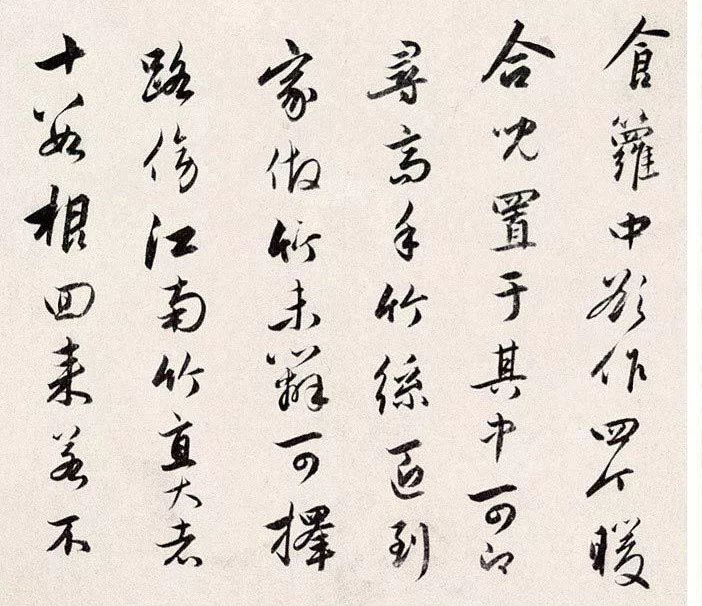 食籮中欲作四个暖
合兒置于其中可即
尋高手竹絲匠到
家做竹未辦可擇
路傍江南竹直大者
十數根回來若不